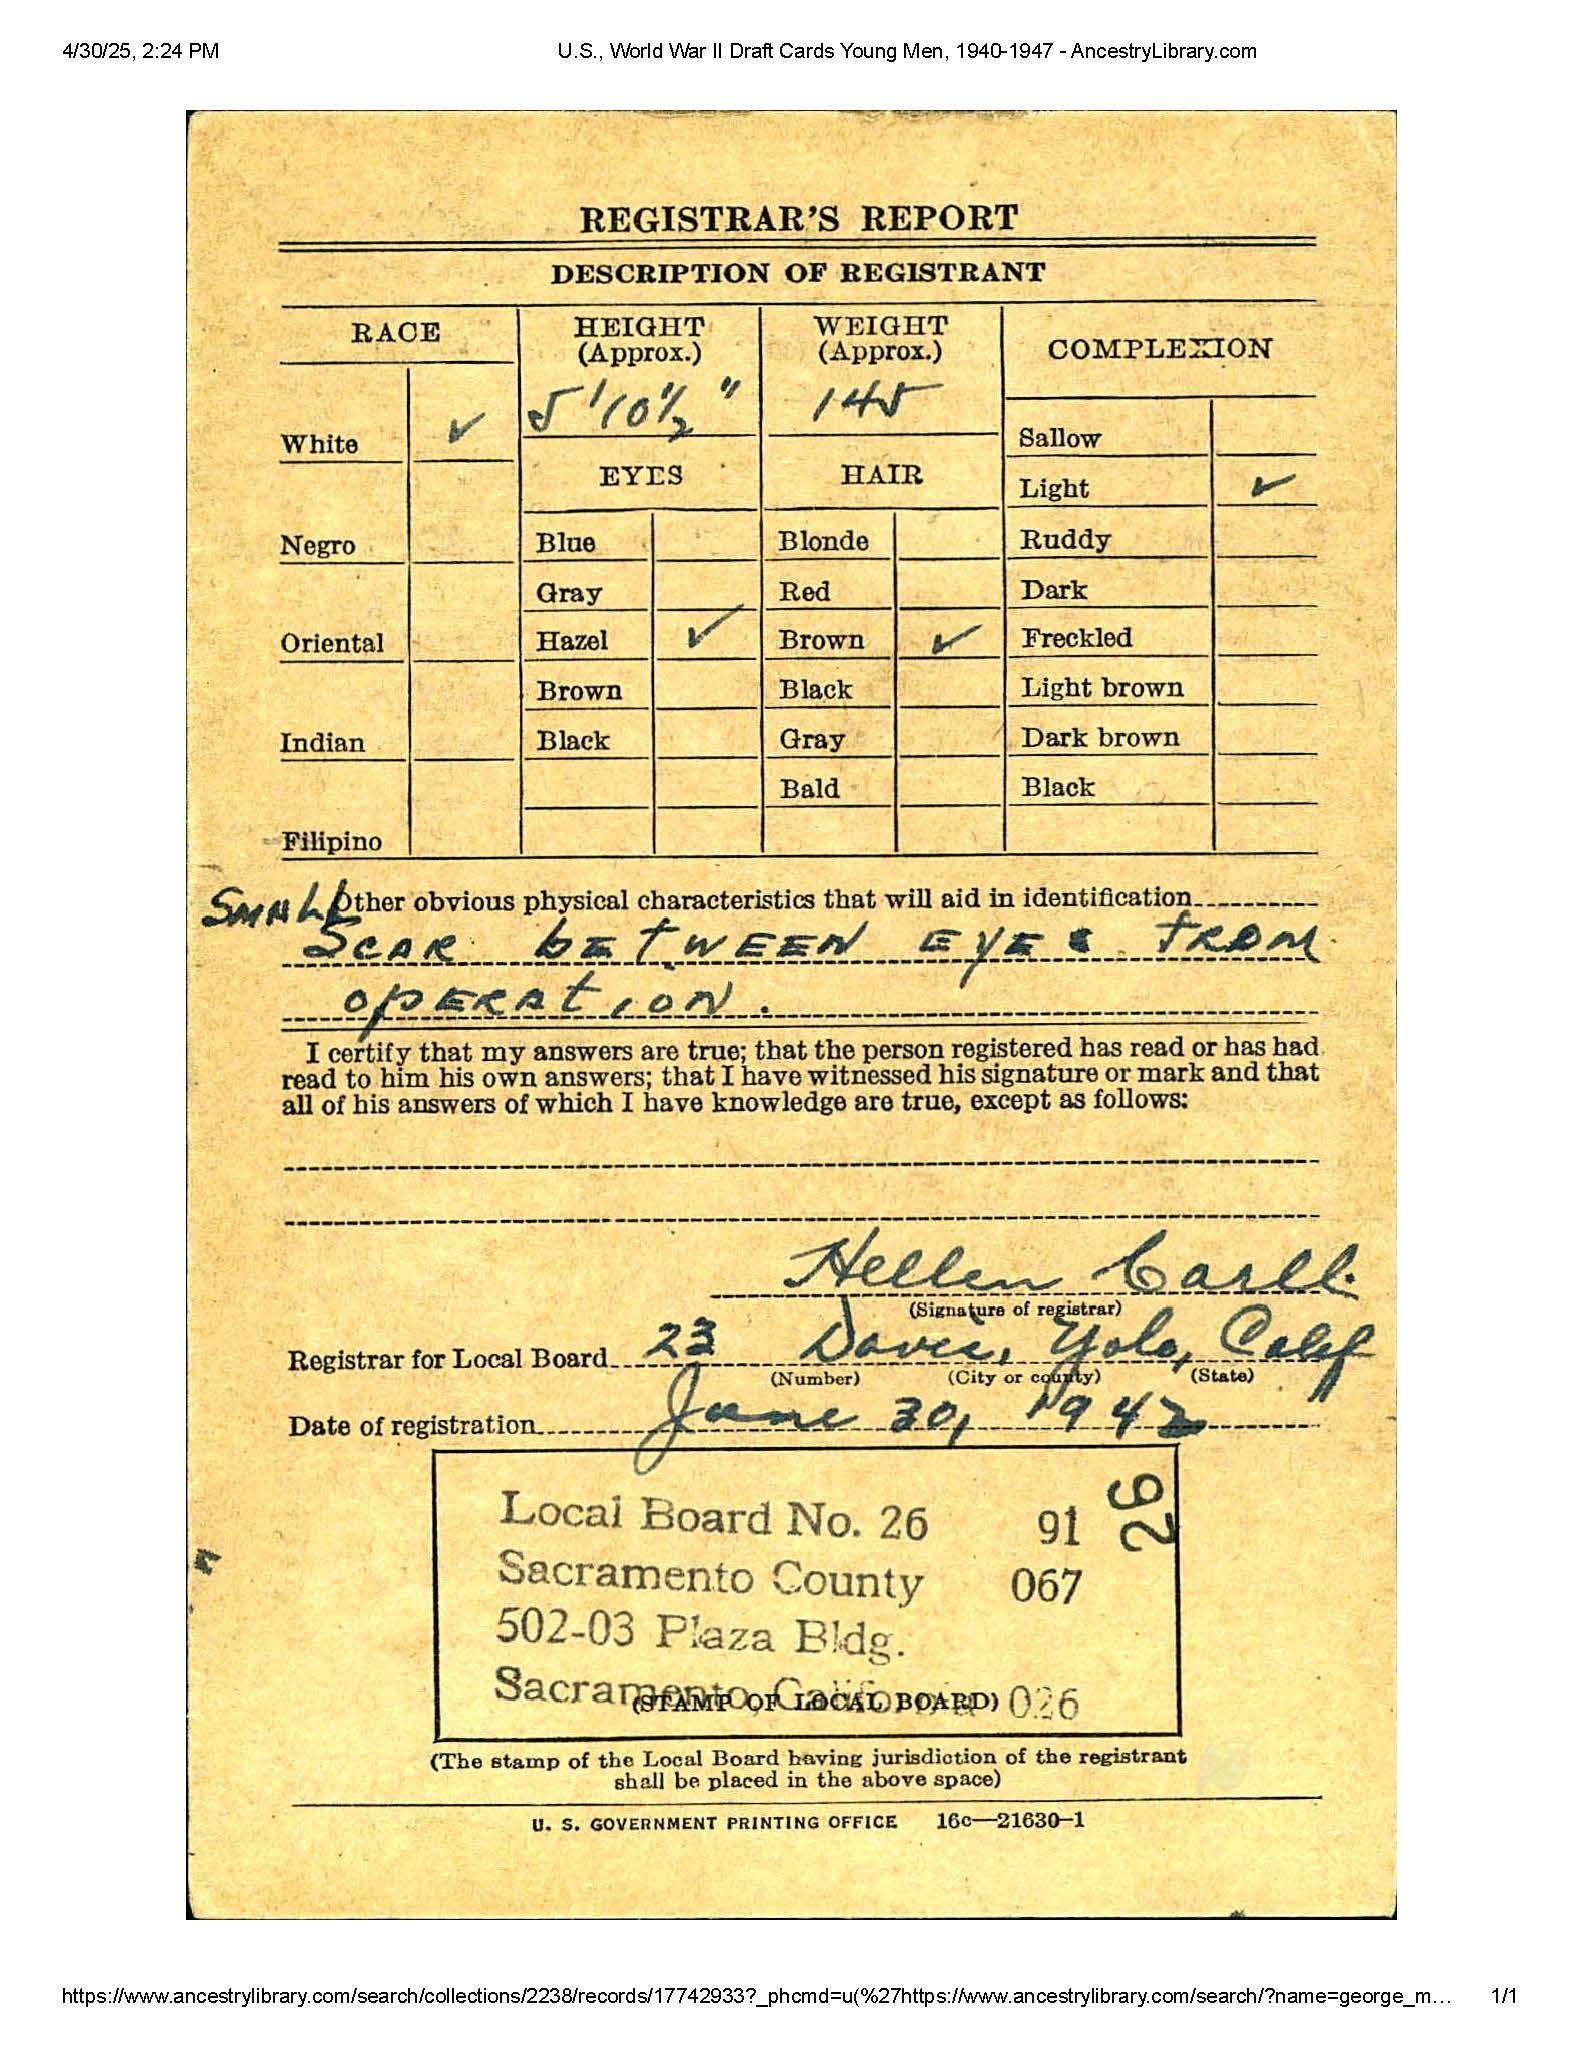 4/30/25, 2:24 PM U.S., World War II Draft Cards Young Men, 1940-1947 - AncestryLibrary.com
REGISTRAR'S REPORT
DESCRIPTION OF REGISTRANT
RACE
HEIGHT
(Approx.)
WEIGHT
(Approx.)
COMPLEXION
5' 10 1/2 " 145
White ✓
Sallow
EYES HAIR
Light ✓
Negro Blue Blonde Ruddy
Gray Red Dark
Oriental Hazel ✓ Brown ✓ Freckled
Brown Black Light brown
Indian Black Gray Dark brown
Bald Black
Filipino
SMALL Other obvious physical characteristics that will aid in identification
SCAR bETWEEN EyES FROM
OPERATION.
I certify that my answers are true; that the person registered has read or has had
read to him his own answers; that I have witnessed his signature or mark and that
all of his answers of which I have knowledge are true, except as follows:
Hellen Carll.
(Signature of registrar)
Registrar for Local Board 23 Davis, Yolo, Calif
(Number) (City or county) (State)
Date of registration June 30, 1942
Local Board No. 26 91 26
Sacramento County 067
502-03 Plaza Bldg.
Sacramento, California 026
(STAMP OF LOCAL BOARD)
(The stamp of the Local Board having jurisdiction of the registrant
shall be placed in the above space)
U. S. GOVERNMENT PRINTING OFFICE 16c—21630-1
https://www.ancestrylibrary.com/search/collections/2238/records/17742933?_phcmd=u(%27https://www.ancestrylibrary.com/search/?name=george_m… 1/1